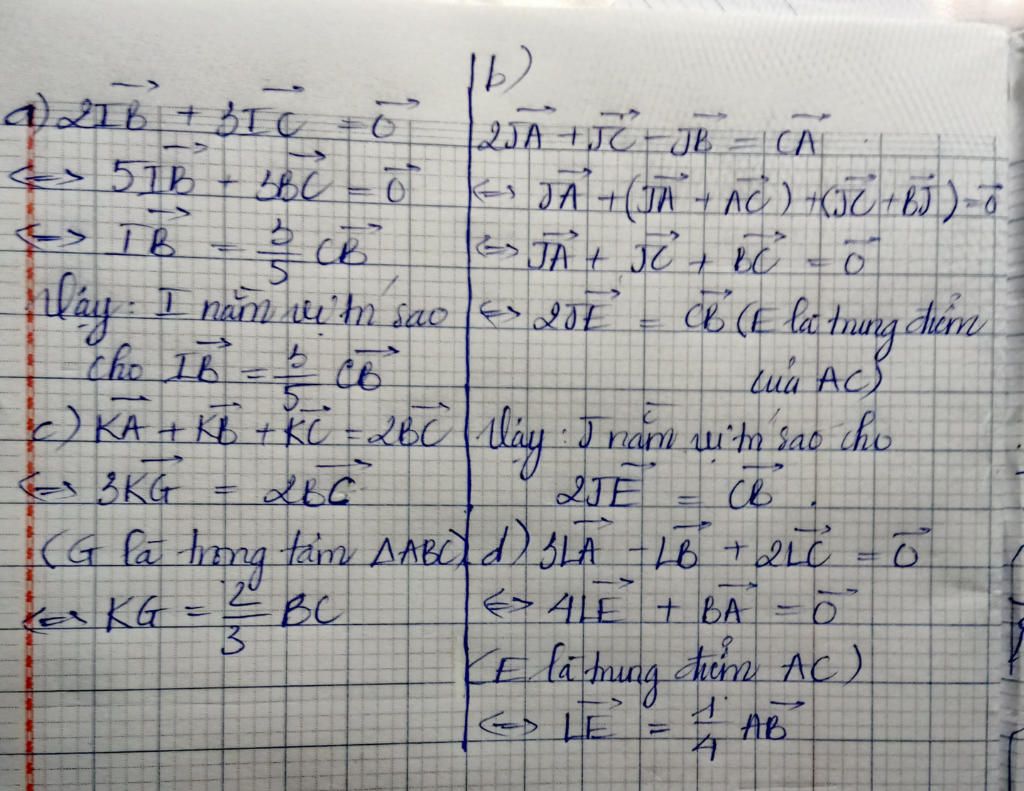 a) 2\overrightarrow{IB} + 3\overrightarrow{IC} = \overrightarrow{0}
<=> 5\overrightarrow{IB} + 3\overrightarrow{BC} = \overrightarrow{0}
<=> \overrightarrow{IB} = \frac{3}{5} \overrightarrow{CB}
Vậy: I nằm vị trí sao
cho \overrightarrow{IB} = \frac{3}{5} \overrightarrow{CB}
c) \overrightarrow{KA} + \overrightarrow{KB} + \overrightarrow{KC} = 2\overrightarrow{BC}
<=> 3\overrightarrow{KG} = 2\overrightarrow{BC}
(G là trọng tâm ΔABC)
<=> KG = \frac{2}{3} BC
b)
2\overrightarrow{JA} + \overrightarrow{JC} - \overrightarrow{JB} = \overrightarrow{CA}
<=> \overrightarrow{JA} + (\overrightarrow{JA} + \overrightarrow{AC}) + (\overrightarrow{JC} + \overrightarrow{BJ}) = \overrightarrow{0}
<=> \overrightarrow{JA} + \overrightarrow{JC} + \overrightarrow{BC} = \overrightarrow{0}
<=> 2\overrightarrow{JE} = \overrightarrow{CB} (E là trung điểm
của AC)
Vậy: J nằm vị trí sao cho
2\overrightarrow{JE} = \overrightarrow{CB}.
d) 3\overrightarrow{LA} - \overrightarrow{LB} + 2\overrightarrow{LC} = \overrightarrow{0}
<=> 4\overrightarrow{LE} + \overrightarrow{BA} = \overrightarrow{0}
(E là trung điểm AC)
<=> \overrightarrow{LE} = \frac{1}{4} \overrightarrow{AB}